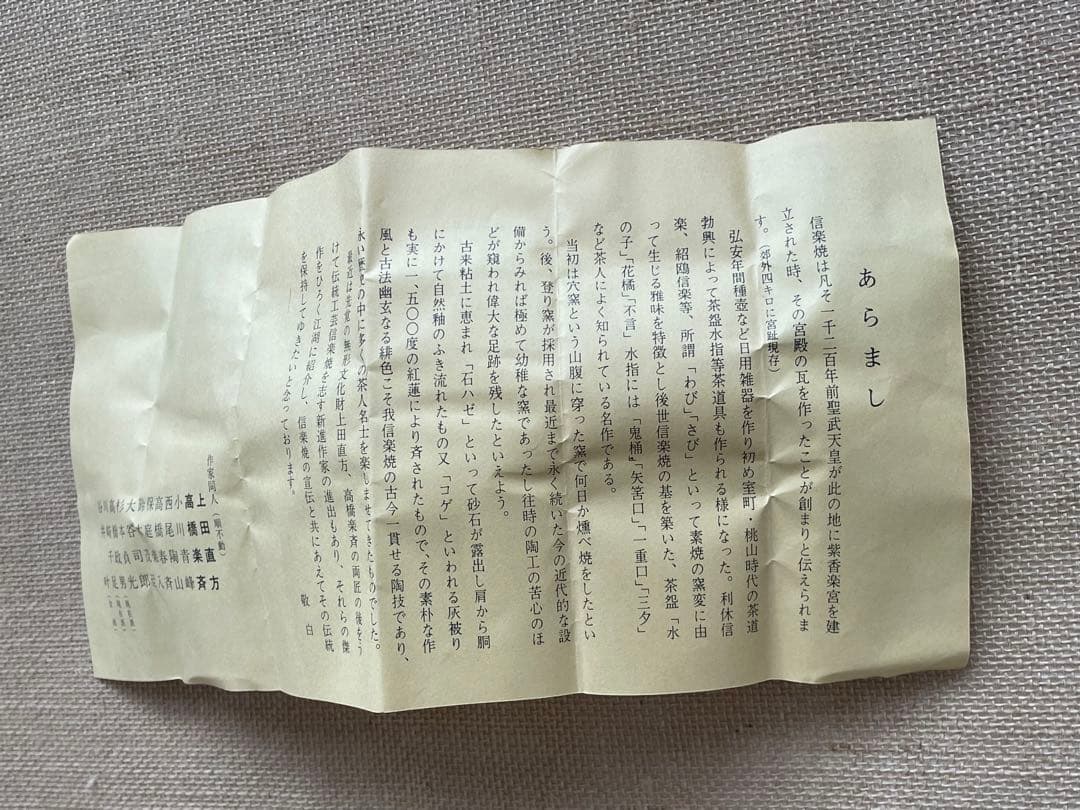 あらまし
信楽焼は凡そ一千二百年前聖武天皇が此の地に紫香楽宮を建
立された時、その宮殿の瓦を作ったことが創まりと伝えられま
す。（郊外四キロに宮趾現存）
弘安年間種壺など日用雑器を作り初め室町・桃山時代の茶道
勃興によって茶盌水指等茶道具も作られる様になった。利休信
楽、紹鴎信楽等、所謂「わび」「さび」といって素焼の窯変に由
って生じる雅味を特徴とし後世信楽焼の基を築いた、茶盌「水
の子」「花橘」「不言」水指には「鬼桶」「矢筈口」「一重口」「三夕」
など茶人によく知られている名作である。
当初は穴窯という山腹に穿った窯で何日か燻べ焼をしたとい
う。後、登り窯が採用され最近まで永く続いた今の近代的な設
備からみれば極めて幼稚な窯であったし往時の陶工の苦心のほ
どが窺われ偉大な足跡を残したといえよう。
古来粘土に恵まれ「石ハゼ」といって砂石が露出し肩から胴
にかけて自然釉のふき流れたもの又「コゲ」といわれる灰被り
も実に一、五〇〇度の紅蓮により斉されたもので、その素朴な作
風と古法幽玄なる緋色こそ我信楽焼の古今一貫せる陶技であり、
永い歴史の中に多くの茶人名士を楽しませてきたものでした。
最近は先覚の無形文化財上田直方、高橋楽斉の両匠の後をう
けて伝統工芸信楽焼を志す新進作家の進出もあり、それらの傑
作をひろく江湖に紹介し、信楽焼の宣伝と共にあえてその伝統
を保持してゆきたいと念っております。
敬白
作家同人（順不動）
上田直方
高橋楽斉
小川青峰
西尾陶山
高橋春斉
大谷司郎
杉本貞光